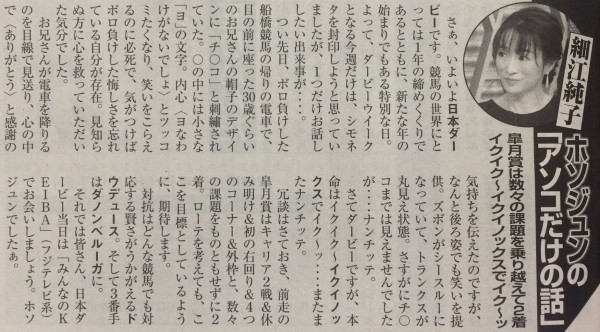 細江純子
ホソジュンの
「アソコだけの話」
皐月賞は数々の課題を乗り越えて2着
イクイク〜イクイノックスでイク〜ッ
さぁ、いよいよ日本ダー
ビーです。競馬の世界にと
っては1年の締めくくりで
あるとともに、新たな年の
始まりでもある特別な日。
よって、ダービーウイーク
となる今週だけは、シモネ
タを封印しようと思ってい
ましたが、1つだけお話し
したい出来事が‥‥。
つい先日、ボロ負けした
船橋競馬の帰りの電車で、
目の前に座った30歳ぐらい
のお兄さんの帽子のデザイ
ンに「チ〇コ」と刺繍され
ていた。〇の中には小さな
「ヨ」の文字。内心〈ヨなわ
けがないでしょ〉とツッコ
ミたくなり、笑いをこらえ
るのに必死で、気がつけば
ボロ負けした悔しさを忘れ
ている自分が存在。見知ら
ぬ方に心を救っていただい
た気分でした。
お兄さんが電車を降りる
のを目線で見送り、心の中
で〈ありがとう〉と感謝の
気持ちを伝えたのですが、
なんと後ろ姿でも笑いを提
供。ズボンがシースルーに
なっていて、トランクスが
丸見え状態。さすがにチ〇
コまでは見えませんでした
が‥‥ナンチッテ。
さてダービーですが、本
命はイクイク〜イクイノッ
クスでイク〜ッ‥‥またま
たナンチッテ。
冗談はさておき、前走の
皐月賞はキャリア2戦&休
み明け&初の右回り&4つ
のコーナー&外枠と、数々
の課題をものともせずに2
着。ローテを考えても、こ
こを目標としているよう
に、期待します。
対抗はどんな競馬でも対
応する賢さがうかがえるド
ウデュース。そして3番手
はダノンベルーガに。
それでは皆さん、日本ダ
ービー当日は「みんなのK
EIBA」(フジテレビ系)
でお会いしましょう。ホソ
ジュンでしたぁ。